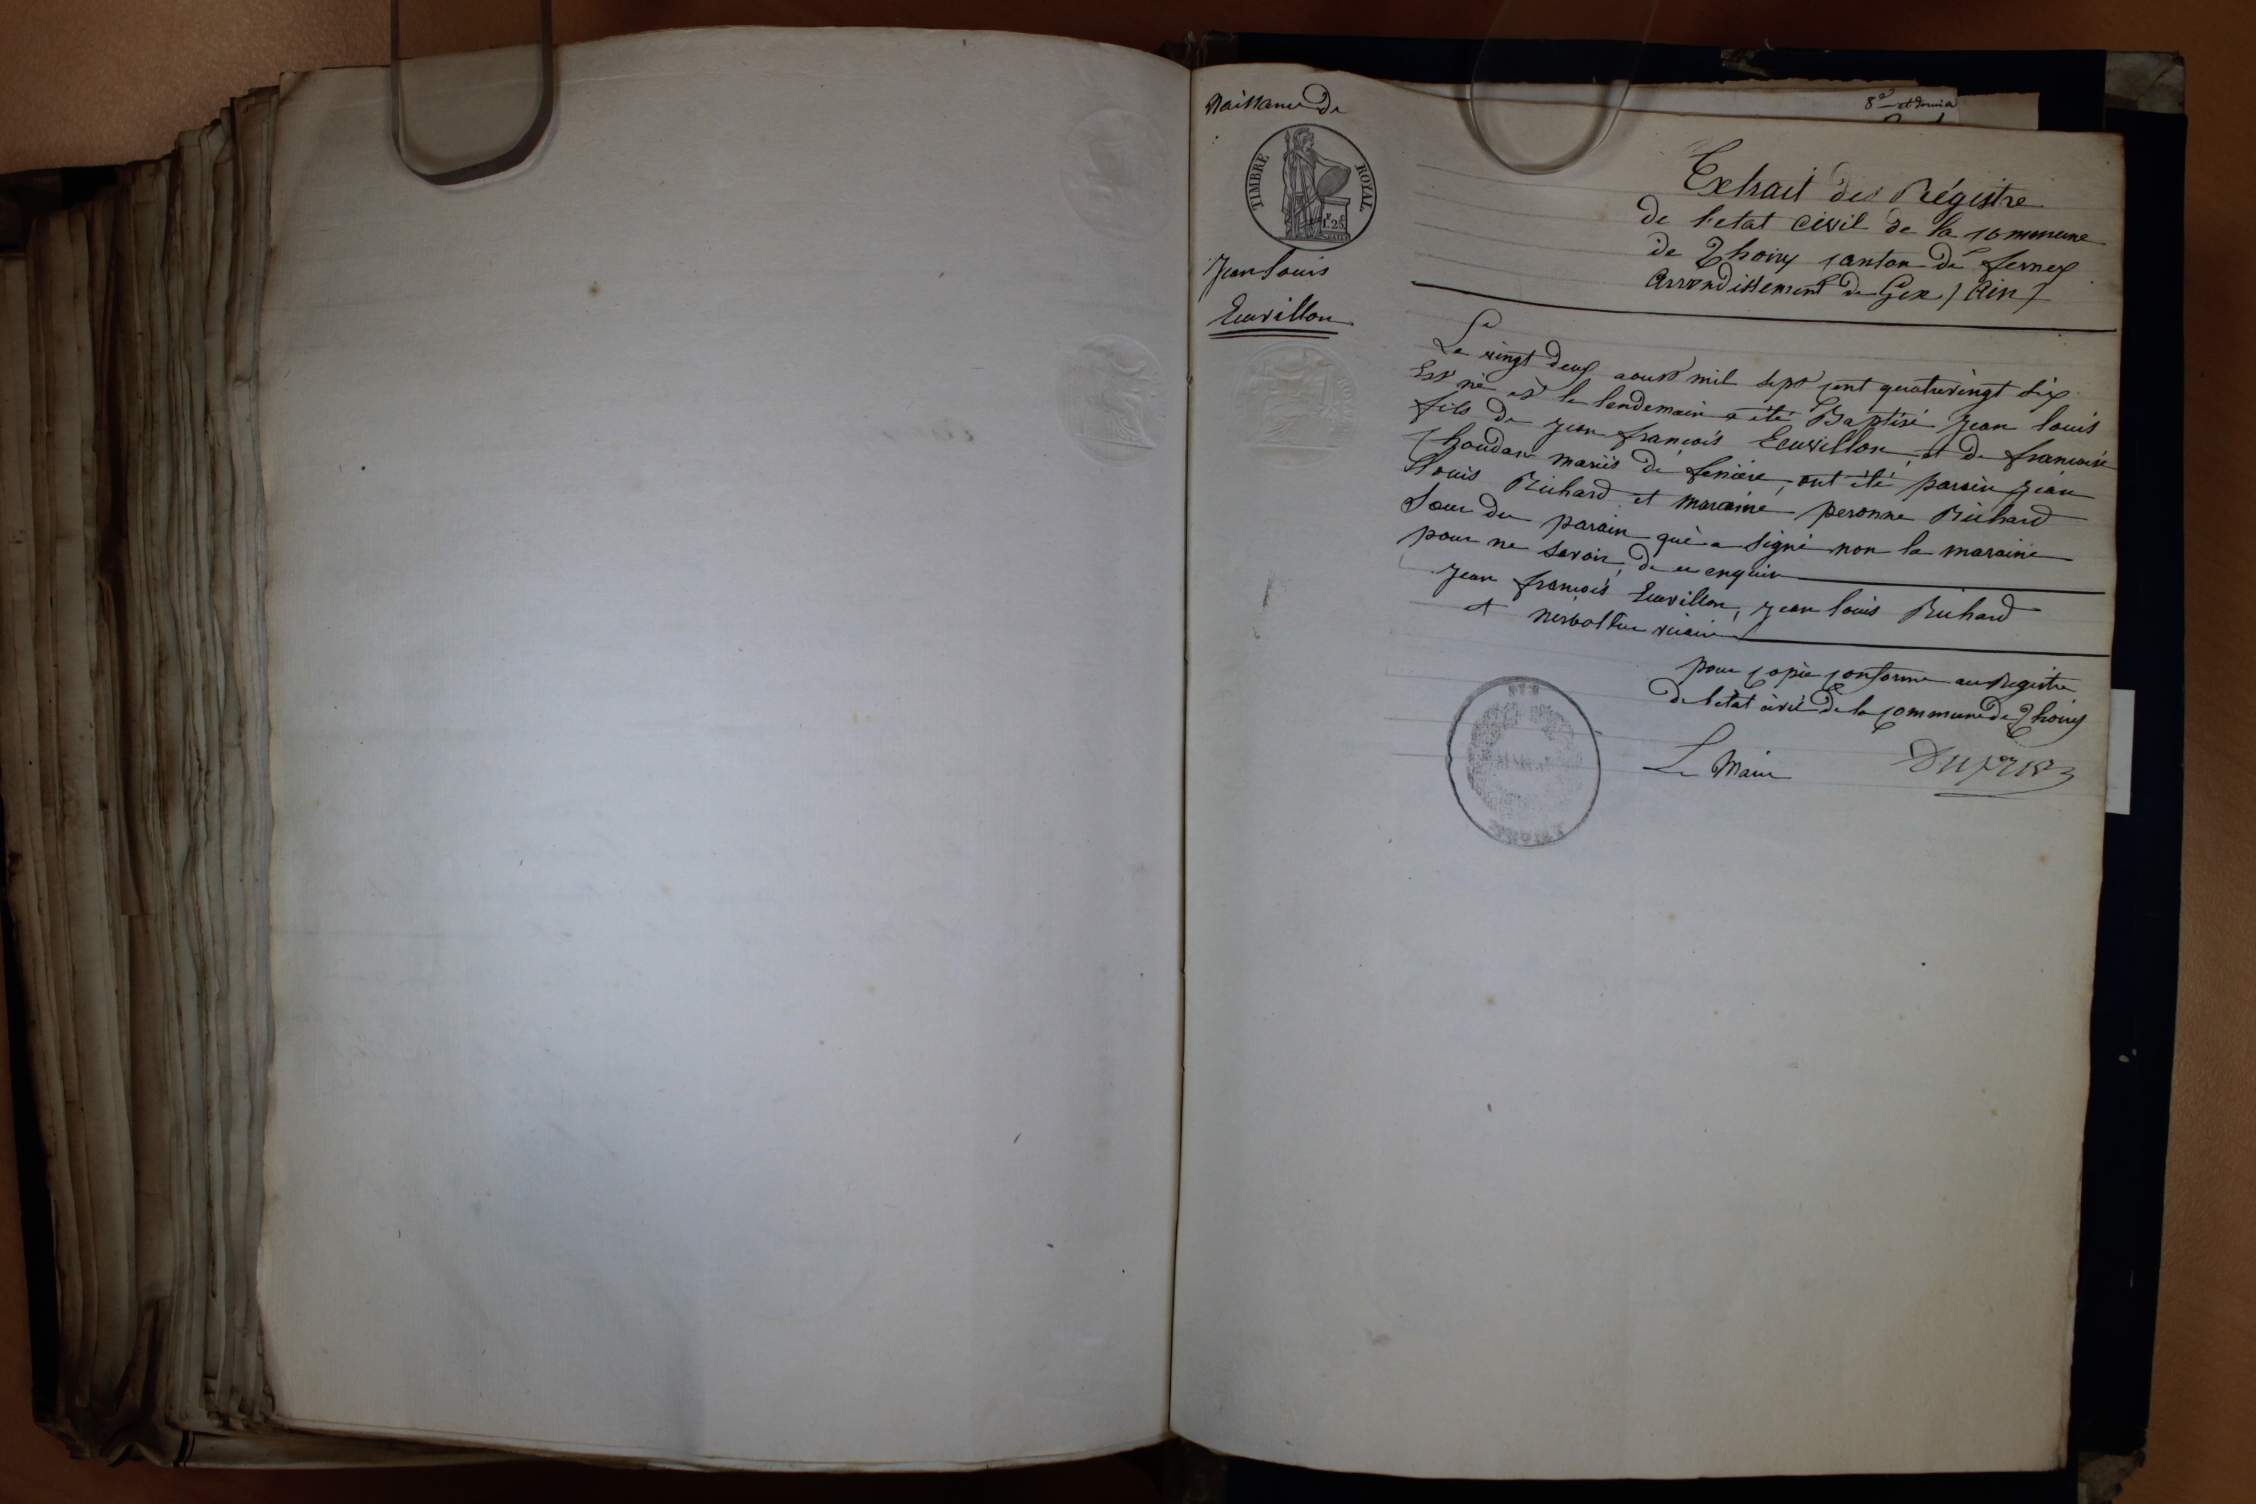 8e et dernier
Naissance de
TIMBRE ROYAL
1F 25C
Jean Louis
Ecuvillon
Extrait des Régistre
de l'etat civil de la commune
de Thoiry canton de fernex
Arrondissement de Gex (Ain)
Le vingt deux aoust mil sept cent quatrevingt six
Est né et le lendemain a été Baptisé Jean Louis
fils de Jean françois Ecuvillon, et de françoise
Choudan mariés de feniere, ont été parain Jean
Louis Richard et maraine peronne Richard
Sœur du parain qui a signé non la maraine
pour ne savoir, de ce enquise
Jean françois Ecuvillon, Jean Louis Richard
et vicaire
pour copie conforme au Registre
de l'etat civil de la commune de Thoiry
Le Maire